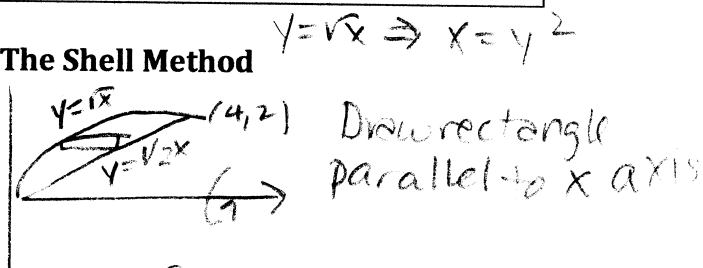 y=√x ⇒ x=y²
The Shell Method
y=√x
(4,2)
y=1/2x
Draw rectangle
parallel to x axis